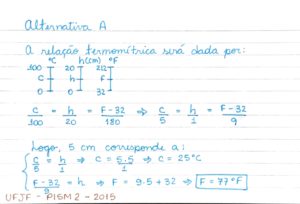 Alternativa A
A relação termométrica será dada por:
°C h(cm) °F
100 20 212
C h F
0 0 32
C/100 = h/20 = F-32/180 ⇒ C/5 = h/1 = F-32/9
Logo, 5 cm corresponde a:
C/5 = h/1 ⇒ C = 5.5/1 ⇒ C = 25°C
F-32/9 = h ⇒ F = 9.5+32 ⇒ F = 77°F
UFJF - PISM 2 - 2015